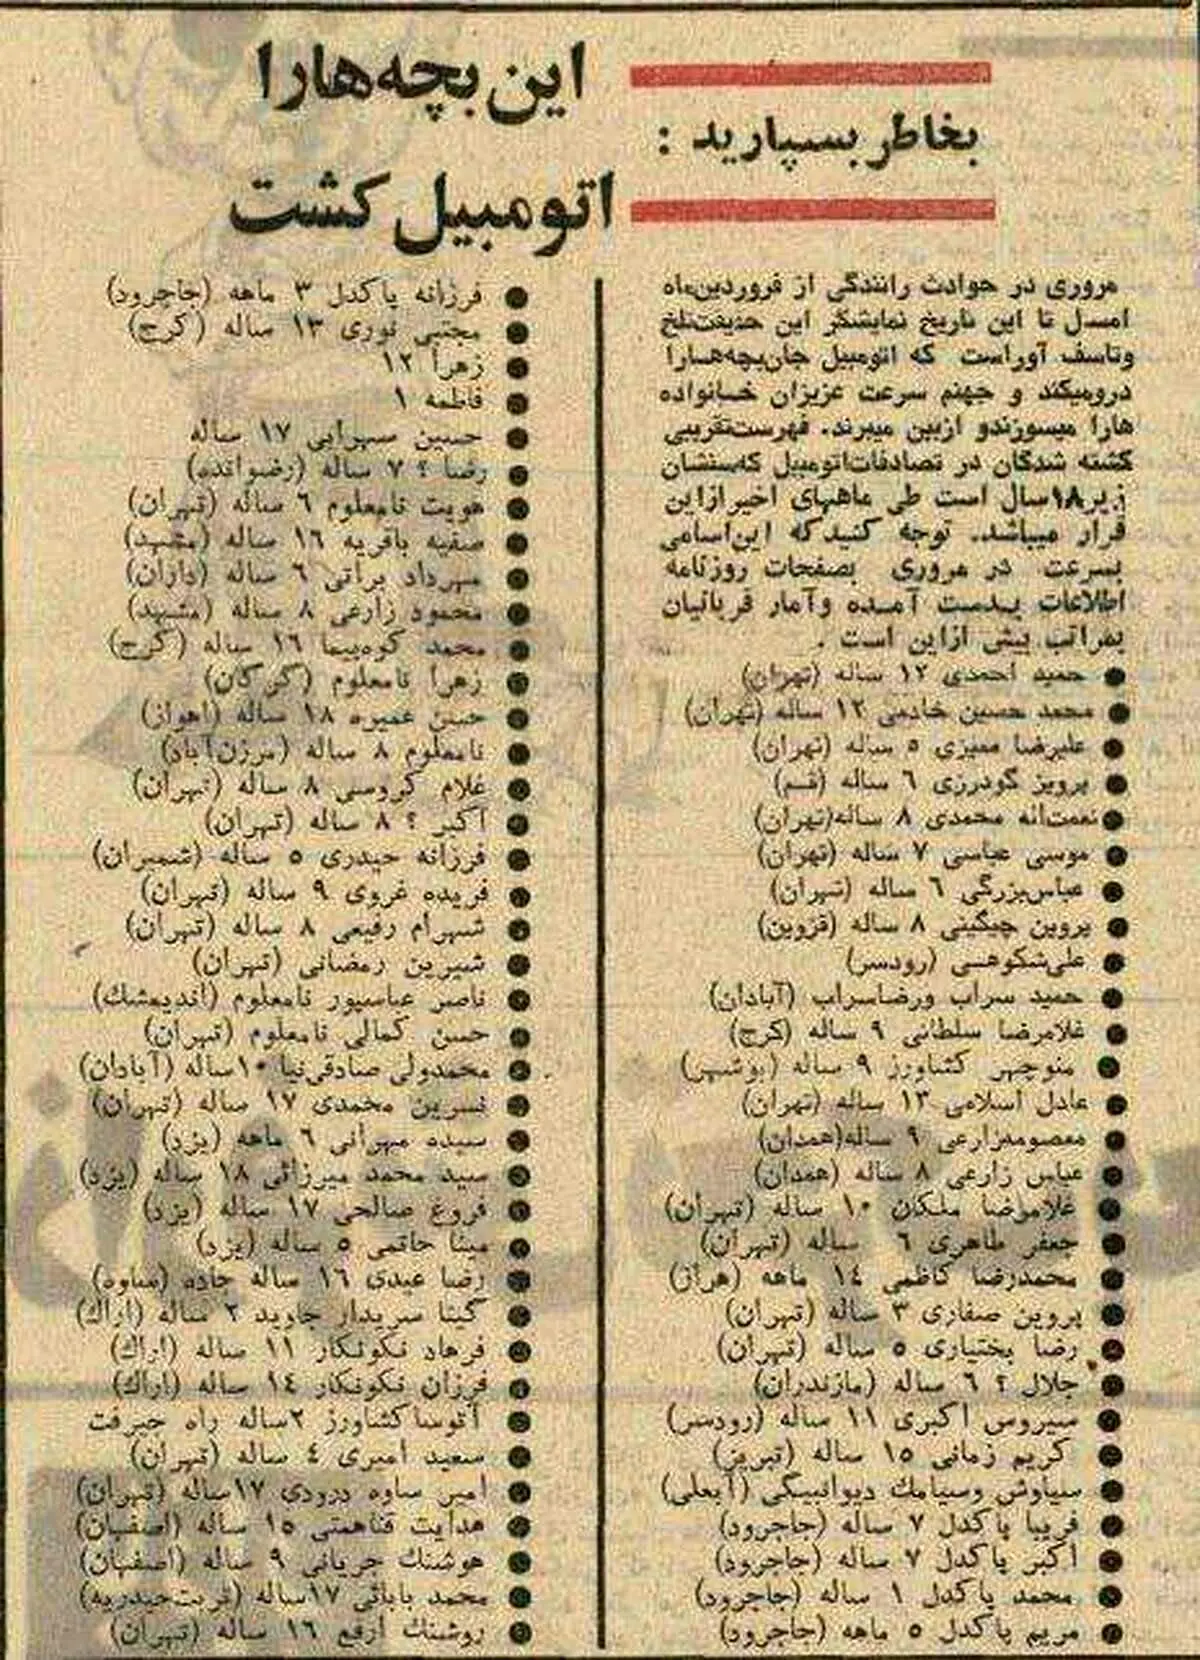 بخاطر بسپارید :
این بچه‌ها را
اتومبیل کشت
مروری در حوادث رانندگی از فروردین‌ماه
امسال تا این تاریخ نمایشگر این حقیقت‌تلخ
وتاسف آوراست که اتومبیل جان‌بچه‌هارا
درومیکند و جهنم سرعت عزیزان خانواده
هارا میسوزندو ازبین میبرند. فهرست‌تقریبی
کشته شدگان در تصادفات‌اتومبیل که‌سنشان
زیر۱۸سال است طی ماههای اخیرازاین
قرار میباشد. توجه کنیدکه این‌اسامی
بسرعت در مروری بصفحات روزنامه
اطلاعات بدست آمده وآمار قربانیان
بمراتب بیش ازاین است .
● حمید احمدی ۱۲ ساله (تهران)
● محمد حسین خادمی ۱۲ ساله (تهران)
● علیرضا ممیزی ۵ ساله (تهران)
● پرویز گودرزی ۶ ساله (قم)
● نعمت‌اله محمدی ۸ ساله(تهران)
● موسی عباسی ۷ ساله (تهران)
● عباس‌بزرگی ۶ ساله (تهران)
● پروین چیگینی ۸ ساله (قزوین)
● علی‌شکوهی (رودسر)
● حمید سراب ورضاسراب (آبادان)
● غلامرضا سلطانی ۹ ساله (کرج)
● منوچهر کشاورز ۹ ساله (بوشهر)
● عادل اسلامی ۱۳ ساله (تهران)
● معصومه‌زارعی ۹ ساله(همدان)
● عباس زارعی ۸ ساله (همدان)
● غلامرضا ملکان ۱۰ ساله (تهران)
● جعفر طاهری ۶ ساله (تهران)
● محمدرضا کاظمی ۱۴ ماهه (هراز)
● پروین صفاری ۳ ساله (تهران)
● رضا بختیاری ۵ ساله (تهران)
● جلال ؟ ۶ ساله (مازندران)
● سیروس اکبری ۱۱ ساله (رودسر)
● کریم زمانی ۱۵ ساله (تبریز)
● سیاوش وسیامك دیوانبیگی (آبعلی)
● فریبا پاکدل ۷ ساله (جاجرود)
● اکبر پاکدل ۷ ساله (جاجرود)
● محمد پاکدل ۱ ساله (جاجرود)
● مریم پاکدل ۵ ماهه (جاجرود)
● فرزانه پاکدل ۳ ماهه (جاجرود)
● مجتبی نوری ۱۳ ساله (کرج)
● زهرا ۱۲
● فاطمه ۱
● حسین سهرابی ۱۷ ساله
● رضا ؟ ۷ ساله (رضوانده)
● هویت نامعلوم ۶ ساله (تهران)
● صفیه باقریه ۱۶ ساله (مشهد)
● مهرداد براتی ۶ ساله (داران)
● محمود زارعی ۸ ساله (مشهد)
● محمد کوه‌پیما ۱۶ ساله (کرج)
● زهرا نامعلوم (گرگان)
● حسن عمیره ۱۸ ساله (اهواز)
● نامعلوم ۸ ساله (مرزن‌آباد)
● غلام کروسی ۸ ساله (تهران)
● اکبر ؟ ۸ ساله (تهران)
● فرزانه حیدری ۵ ساله (شمیران)
● فریده غروی ۹ ساله (تهران)
● شهرام رفیعی ۸ ساله (تهران)
● شیرین رمضانی (تهران)
● ناصر عباسپور نامعلوم (اندیمشك)
● حسن کمالی نامعلوم (تهران)
● محمدولی صادقی‌نیا ۱۰ساله (آبادان)
● نسرین محمدی ۱۷ ساله (تهران)
● سیده مهرانی ۶ ماهه (یزد)
● سید محمد میرزائی ۱۸ ساله (یزد)
● فروغ صالحی ۱۷ ساله (یزد)
● مینا حاتمی ۵ ساله (یزد)
● رضا عبدی ۱۶ ساله جاده (ساوه)
● گیتا سریدار جاوید ۲ ساله (اراك)
● فرهاد نکونکار ۱۱ ساله (اراك)
● فرزان نکونکار ۱۴ ساله (اراك)
● آتوساکشاورز ۲ساله راه جیرفت
● سعید امیری ۴ ساله (تهران)
● امیر ساوه درودی ۱۷ساله (تهران)
● هدایت قناهمتی ۱۵ ساله (اصفهان)
● هوشنك جریانی ۹ ساله (اصفهان)
● محمد بابائی ۱۷ساله (تربت‌حیدریه)
● روشنك ارفع ۱۶ ساله (تهران)